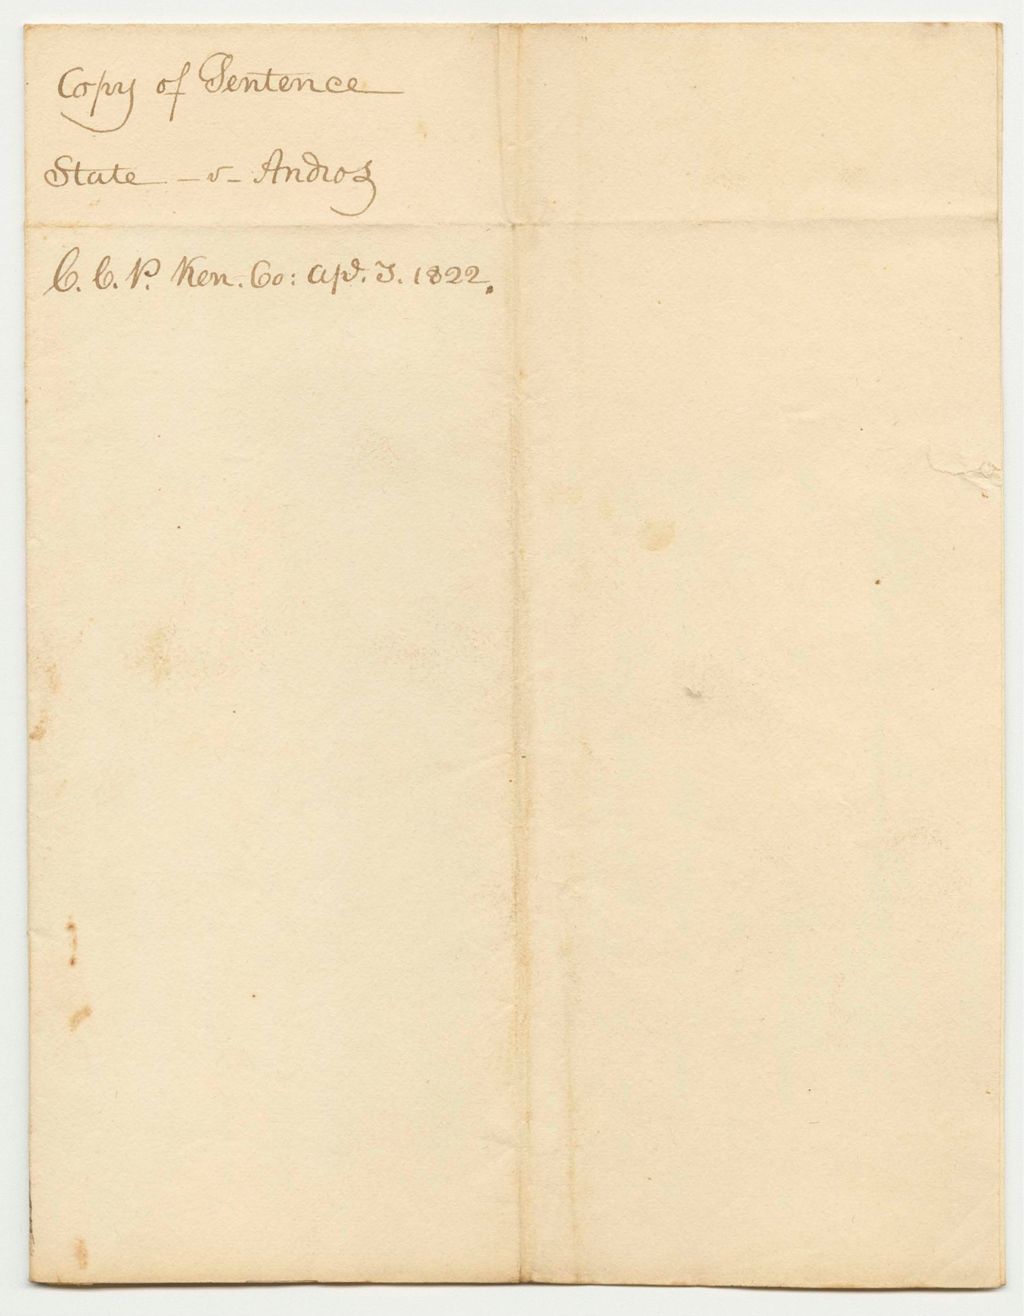 Copy of Sentence
State - v - Andros
C. C. P. Ken. Co: Apl. T. 1822.